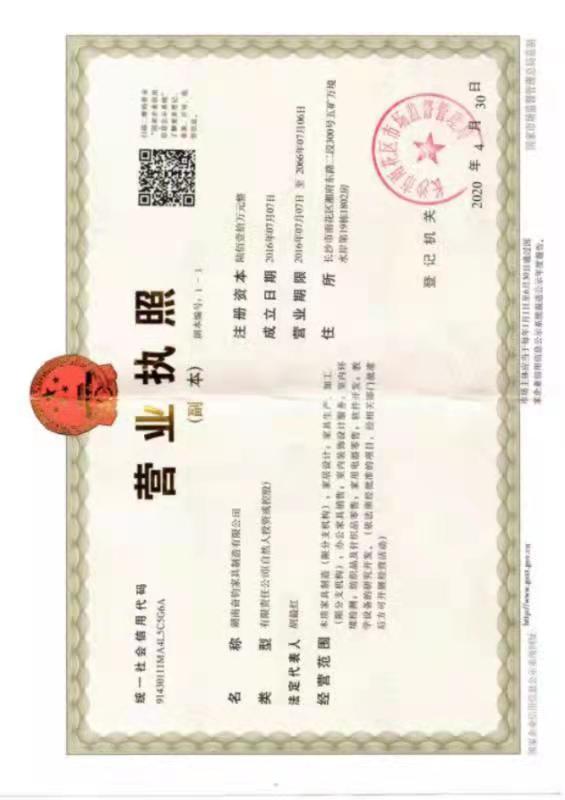 统一社会信用代码
91430111MA4L5C5G6A
营业执照
(副 本)
副本编号:1-1
扫描二维码登录
“国家企业信用
信息公示系统”
了解更多登记、
备案、许可、监
管信息。
名 称 湖南奋钧家具制造有限公司
类 型 有限责任公司(自然人投资或控股)
法定代表人 胡益红
经营范围 木质家具制造(限分支机构);家居设计;家具生产、加工
(限分支机构);办公家具销售;室内装饰设计服务;室内环
境检测;纺织品及针织品零售;家用电器零售;软件开发;教
学设备的研究开发。(依法须经批准的项目,经相关部门批准
后方可开展经营活动)
注册资本 陆佰壹拾万元整
成立日期 2016年07月07日
营业期限 2016年07月07日 至 2066年07月06日
住 所 长沙市雨花区湘府东路二段300号五矿万境
水岸第19栋1802房
登记机关
长沙市雨花区市场监督管理局
2020 年 4 月 30 日
国家企业信用信息公示系统网址:
http://www.gsxt.gov.cn
市场主体应当于每年1月1日至6月30日通过国
家企业信用信息公示系统报送公示年度报告。
国家市场监督管理总局监制